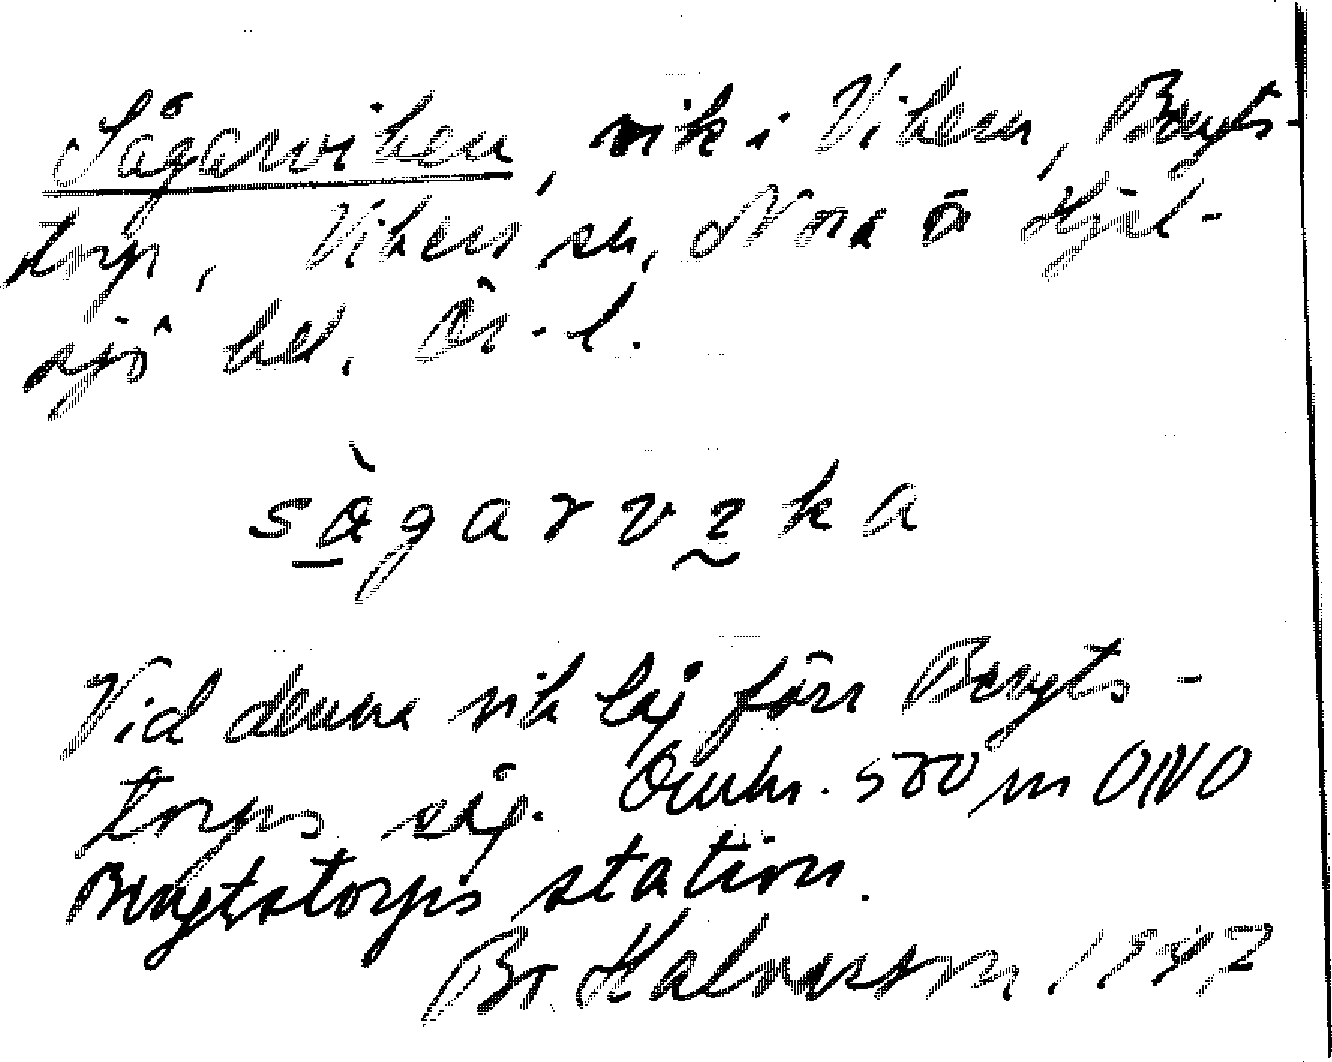 Sågarviken, vik i Vikern, Bengts-
torp, Vikers sn, Nora o Hjul-
sjö bd, Ör. l.
sågarvika
Vid denna vik låg förr Bengts-
torps såg. Omkr. 500 m ONO
Bengtstorps station.
Br. Kalmesson 1942